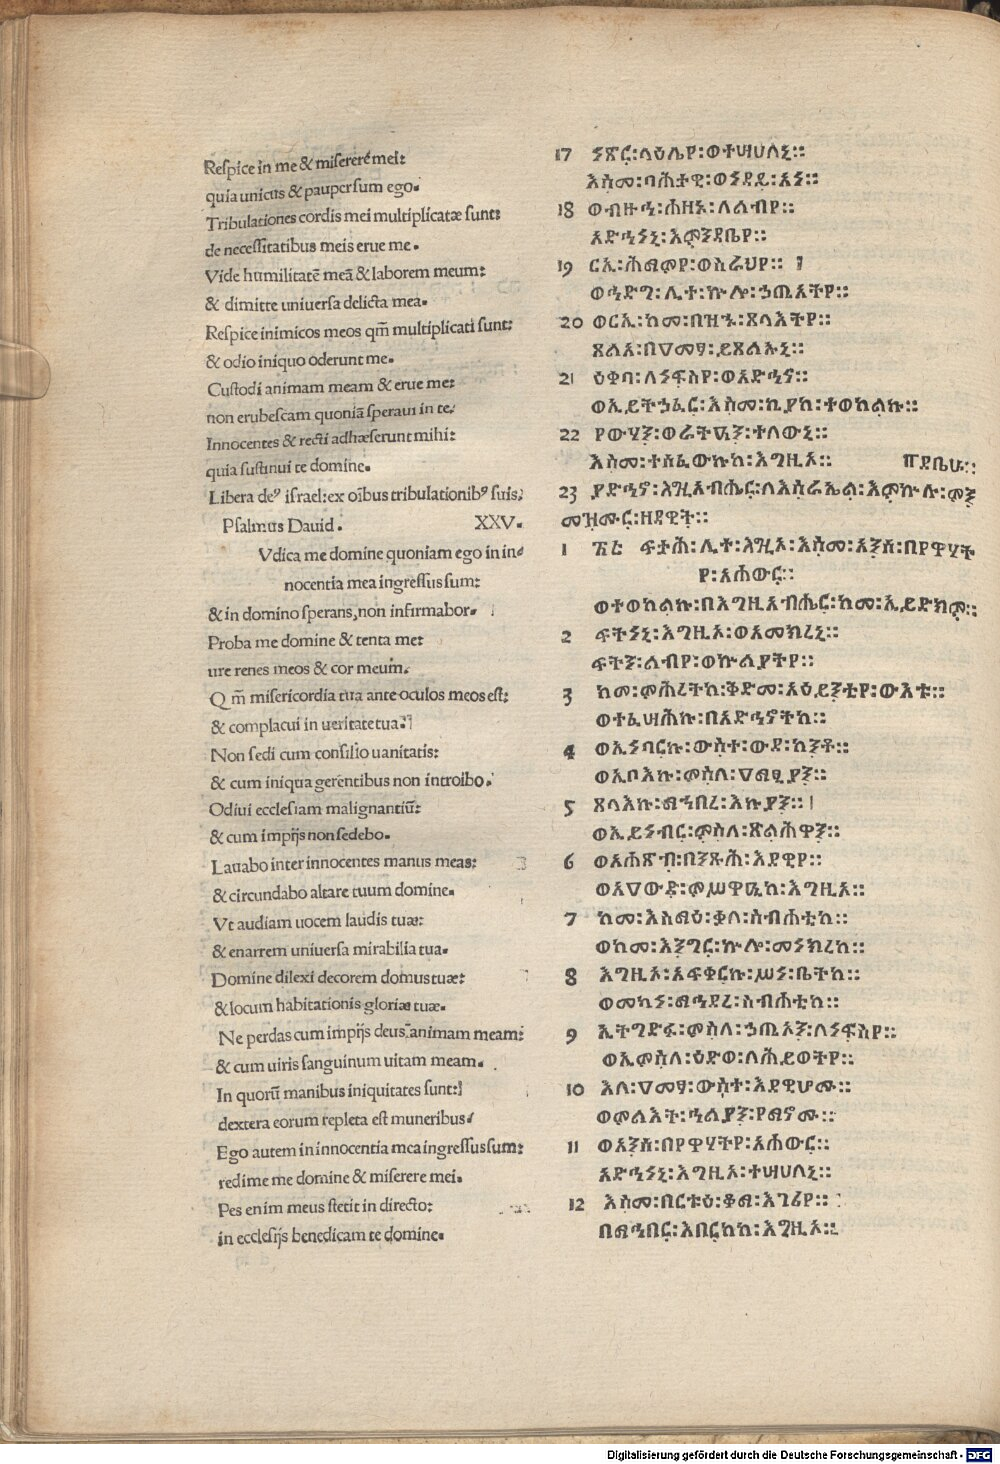 Respice in me & miserere mei:
quia unicus & pauper sum ego.
Tribulationes cordis mei multiplicatæ sunt:
de necessitatibus meis erue me.
Vide humilitatē meā & laborem meum:
& dimitte uniuersa delicta mea.
Respice inimicos meos qm̄ multiplicati sunt:
& odio iniquo oderunt me.
Custodi animam meam & erue me:
non erubescam quoniā speraui in te/
Innocentes & recti adhæserunt mihi:
quia sustinui te domine.
Libera deꝰ israel: ex oībus tribulationibꝰ suis.
Psalmus Dauid. XXV.
Vdica me domine quoniam ego in in/
nocentia mea ingressus sum:
& in domino sperans, non infirmabor.
Proba me domine & tenta me:
ure renes meos & cor meum.
Qm̄ misericordia tua ante oculos meos est:
& complacui in ueritate tua:
Non sedi cum consilio uanitatis:
& cum iniqua gerentibus non introibo.
Odiui ecclesiam malignantiū:
& cum impijs non sedebo.
Lauabo inter innocentes manus meas:
& circundabo altare tuum domine.
Vt audiam uocem laudis tuæ:
& enarrem uniuersa mirabilia tua.
Domine dilexi decorem domus tuæ:
& locum habitationis gloriæ tuæ.
Ne perdas cum impijs deus animam meam:
& cum uiris sanguinum uitam meam.
In quorū manibus iniquitates sunt:
dextera eorum repleta est muneribus/
Ego autem in innocentia mea ingressus sum:
redime me domine & miserere mei.
Pes enim meus stetit in directo:
in ecclesijs benedicam te domine.
17 ነጽር፡ላዕሌየ፡ወተሣሀለኒ፡፡
እስመ፡ባሕቲዊ፡ወነዳይ፡አነ፡፡
18 ወብዙኅ፡ሕዘኑ፡ለልብየ፡፡
አድኅነኒ፡እምንዳቤየ፡፡
19 ርኢ፡ሕልምየ፡ወስራህየ፡፡
ወኅድግ፡ሊተ፡ኵሎ፡ኃጢአትየ፡፡
20 ወርኢ፡ከመ፡በዝኁ፡ጸላእትየ፡፡
ጸልአ፡በዓመፃ፡ይጸልኡኒ፡፡
21 ዕቀባ፡ለነፍስየ፡ወአድኅና፡፡
ወኢይትኃፈር፡እስመ፡ኪያከ፡ተወከልኩ፡፡
22 የውሃን፡ወራትዓን፡ተለውኒ፡፡
እስመ፡ተሰፈውኩከ፡እግዚኦ፡፡
23 ያድኅኖ፡እግዚአብሔር፡ለእስራኤል፡እምኵሉ፡ምን
መዝሙር፡ዘዳዊት፡፡
1 ፍታሕ፡ሊተ፡እግዚኦ፡እስመ፡አንሰ፡በየዋሃት
የ፡አሐውር፡፡
ወተወከልኩ፡በእግዚአብሔር፡ከመ፡ኢይድክም፡፡
2 ፍትነኒ፡እግዚኦ፡ወአመክረኒ፡፡
ፍትን፡ልብየ፡ወኵልያትየ፡፡
3 ከመ፡ምሕረትከ፡ቅድመ፡አዕይንቲየ፡ውእቱ፡፡
ወተፈሣሕኩ፡በአድኅኖትከ፡፡
4 ወኢነባርኩ፡ውስተ፡ውደ፡ከንቶ፡፡
ወኢቦእኩ፡ምስለ፡ዓልፂያን፡፡
5 ጸላእኩ፡ልኅበረ፡እኩያን፡፡
ወኢይነብር፡ምስለ፡ጽልሕዋን፡፡
6 ወአሐጽብ፡በንጹሕ፡እደዊየ፡፡
ወአዓውድ፡ምሥዋዒከ፡እግዚኦ፡፡
7 ከመ፡እስልዕ፡ቃለ፡ስብሐቲከ፡፡
ወከመ፡እንግር፡ኵሎ፡መነክረከ፡፡
8 እግዚኦ፡አፍቀርኩ፡ሥነ፡ቤትከ፡፡
ወመካነ፡ልኅደረ፡ስብሐቲከ፡፡
9 ኢትግድፋ፡ምስለ፡ኃጢኦን፡ለነፍስየ፡፡
ወኢምስለ፡ዕድወ፡ለሕይወትየ፡፡
10 እለ፡ዓመፃ፡ውስተ፡እደዊሆሙ፡፡
ወመልእት፡ኅልያን፡የልኖሙ፡፡
11 ወአንሰ፡በየዋሃትየ፡አሐውር፡፡
አድኅነኒ፡እግዚኦ፡ተሣሀለኒ፡፡
12 እስመ፡በርቱዕ፡ቆል፡እገሪየ፡፡
በልኅበር፡እበርከከ፡እግዚኦ፡፡
Digitalisierung gefördert durch die Deutsche Forschungsgemeinschaft - DFG